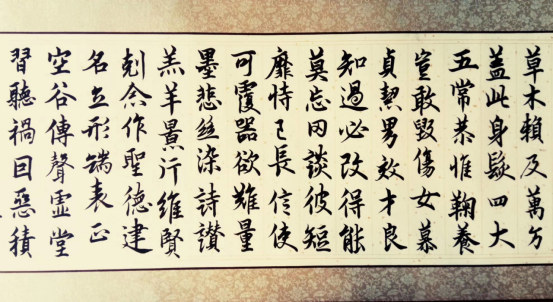 草木賴及萬方
蓋此身髮四大
五常恭惟鞠養
豈敢毀傷女慕
貞絜男效才良
知過必改得能
莫忘罔談彼短
靡恃己長信使
可覆器欲難量
墨悲絲染詩讚
羔羊景行維賢
剋念作聖德建
名立形端表正
空谷傳聲虛堂
習聽禍因惡積